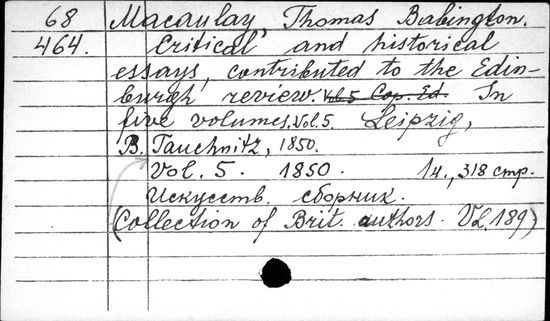 68 Macaulay, Thomas Babington.
464. Critical and historical
essays, contributed to the Edin-
burgh review. Vol. 5 Cop. Ed. In
five volumes. Vol. 5. Leipzig,
B. Tauchnitz, 1850.
Vol. 5. 1850. 1л., 318 стр.
Искусств. сборник.
(Collection of Brit. authors. Vol. 189)